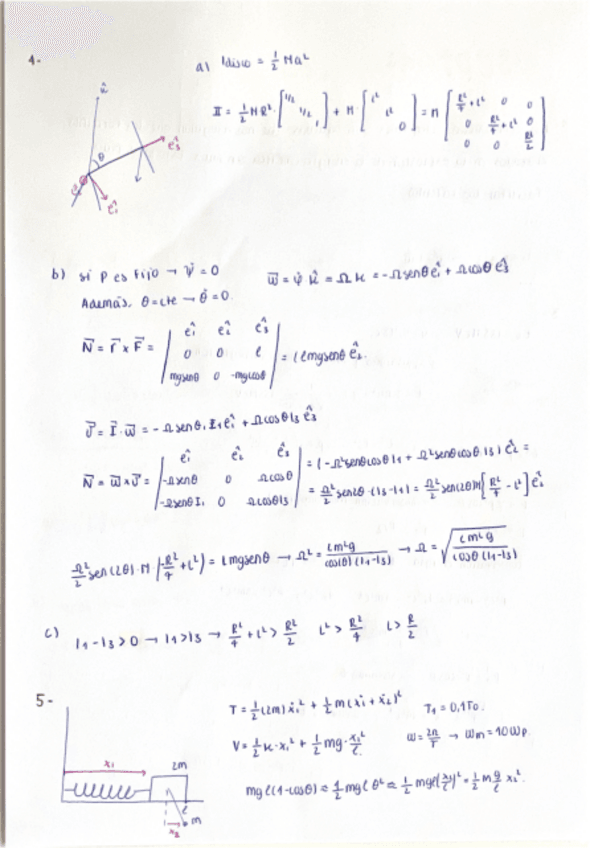 4-
a) Idisco = 1/2 Ma²
II = 1/2 MR² · [1/2 1/2 1] + M · [l² l² 0] = M [R²/4 + l² 0 0; 0 R²/4 + l² 0; 0 0 R²/2]
û
θ
ê₃
ê₁
b) si P es fijo → ψ̇ = 0 w̄ = φ̇ k̂ = Ω k = -Ω senθ ê₁ + Ω cosθ ê₃
Además, θ = cte → θ̇ = 0.
N̄ = r̄ x F̄ = | ê₁ ê₂ ê₃; 0 0 l; mg senθ 0 -mg cosθ | = l mg senθ ê₂.
J̄ = Ī · w̄ = -Ω senθ · I₁ ê₁ + Ω cosθ I₃ ê₃
N̄ = w̄ x J̄ = | ê₁ ê₂ ê₃; -Ω senθ 0 Ω cosθ; -Ω senθ I₁ 0 Ω cosθ I₃ | = (-Ω² senθ cosθ I₁ + Ω² senθ cosθ I₃) ê₂ =
= Ω²/2 sen2θ · (I₃ - I₁) = Ω²/2 sen(2θ) M [R²/4 - l²] ê₂
Ω²/2 sen(2θ) · M · [-R²/4 + l²] = l mg senθ → Ω² = l m² g / cos(θ) (I₁ - I₃) → Ω = √(l m² g / cosθ (I₁ - I₃))
c) I₁ - I₃ > 0 → I₁ > I₃ → R²/4 + l² > R²/2 l² > R²/4 l > R/2
5-
T = 1/2 (2m) ẋ₁² + 1/2 m (ẋ₁ + ẋ₂)² T₁ = 0,1 T₀.
V = 1/2 k · x₁² + 1/2 mg · x₂²/l w = 2π/T → wm = 10 wp
mg l (1 - cosθ) ≈ 1/2 mg l θ² ≈ 1/2 mgl (x₂/l)² = 1/2 m g/l x₂².
x₁
2m
l
m
x₂